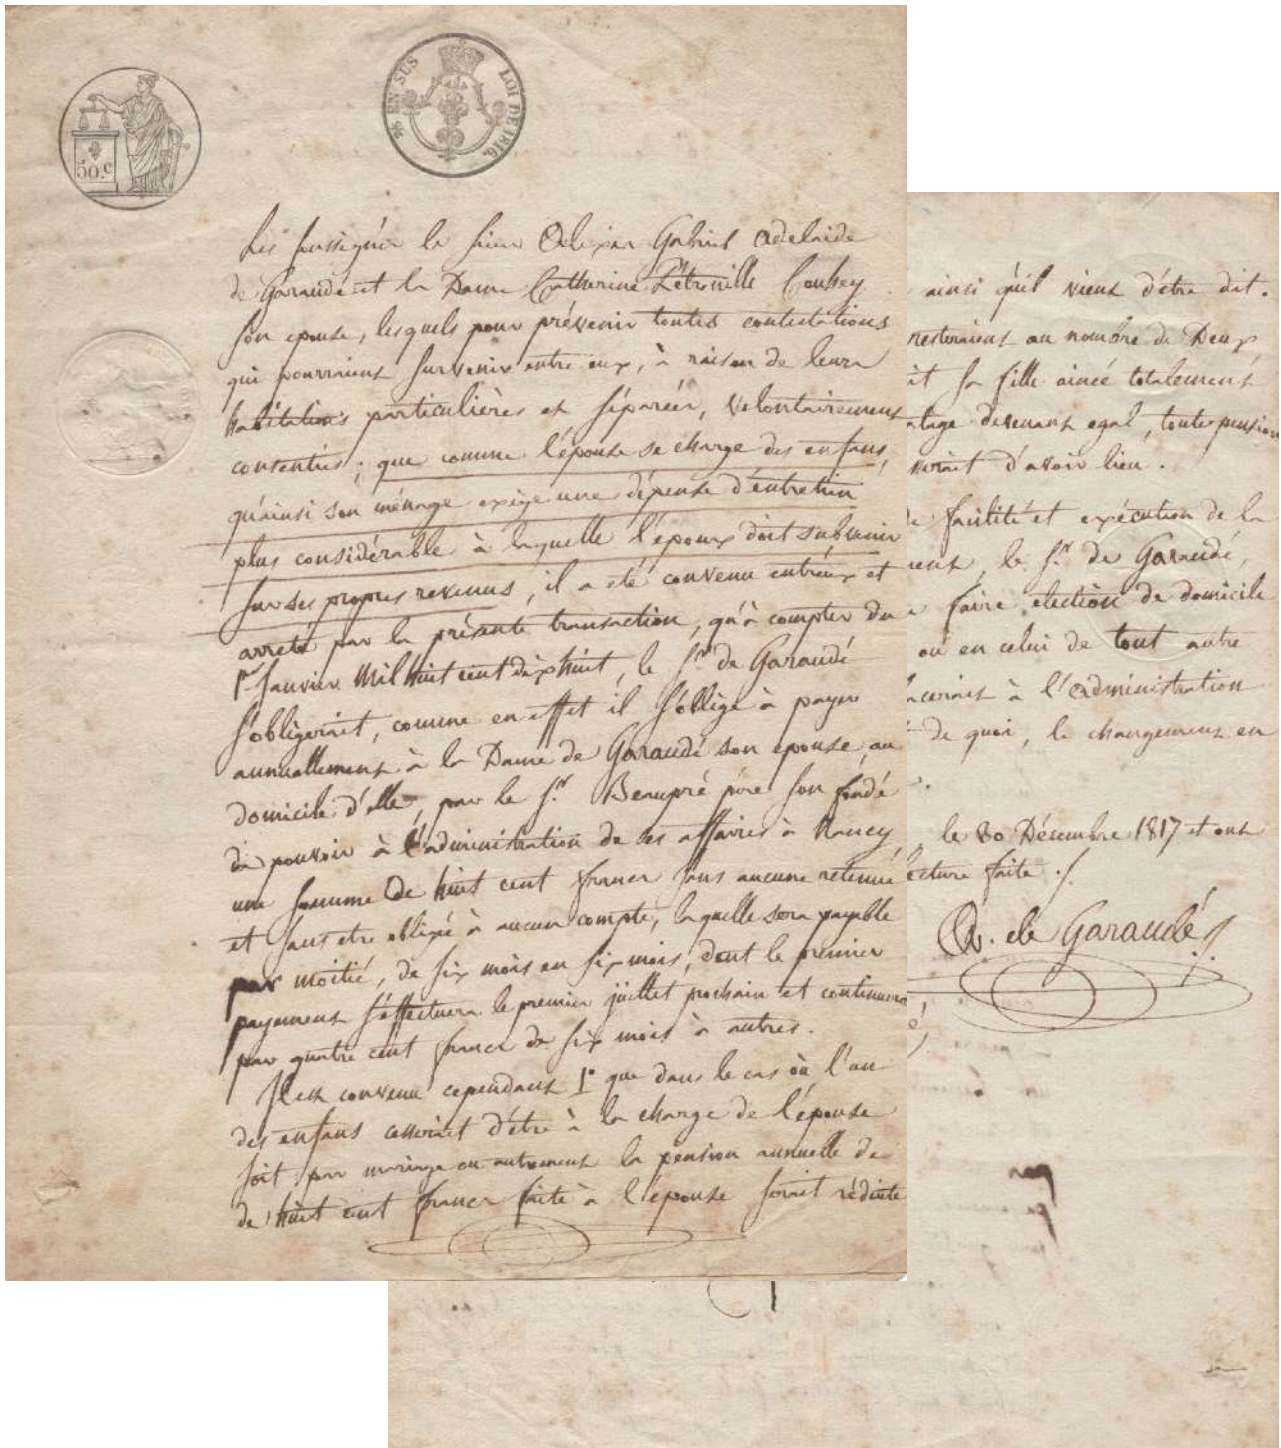 50.c
25 EN SUS LOI DE 1816.
Les soussignés le sieur Gabriel Adelaide
de Garaudé et la Dame Catherine Pétronille Couhey
son epouse, lesquels pour prévenir toutes contestations
qui pourraient survenir entre eux, à raison de leurs
habitations particulières et séparées, volontairement
consenties; que comme l'épouse se charge des enfans,
qu'ainsi son ménage exige une dépense d'entretien
plus considérable à laquelle l'époux doit subvenir
sur ses propres revenus, il a été convenu entr'eux et
arreté par la présente transaction, qu'à compter du
1er Janvier Mil huit cent dix huit, le Sr. de Garaudé
s'obligerait, comme en effet il s'oblige à payer
annuellement à la Dame de Garaudé son epouse, au
domicile d'elle, par le Sr. Beaupré père son fondé
de pouvoir à l'administration de ses affaires à Nancy,
une somme de huit cent francs sans aucune retenue
et sans etre obligé à aucun compte, laquelle sera payable
par moitié, de six mois en six mois, dont le premier
payement s'effectuera le premier juillet prochain et continuera
par quatre cent francs de six mois à autres.
Il est convenu cependant 1° que dans le cas où l'un
des enfans cesserait d'être à la charge de l'épouse
soit par mariage ou autrement la pension annuelle de
de huit cent francs faite à l'épouse serait réduite
ainsi qu'il vient d'être dit.
resteraient au nombre de Deux,
sa fille ainée totalement
devenant egal, toute pension
d'avoir lieu.
facilité et exécution de la
le Sr. de Garaudé,
faire election de domicile
ou en celui de tout autre
à l'administration
de quoi, le changement en
le 30 Décembre 1817 et ont
lecture faite ./.
de Garaudé